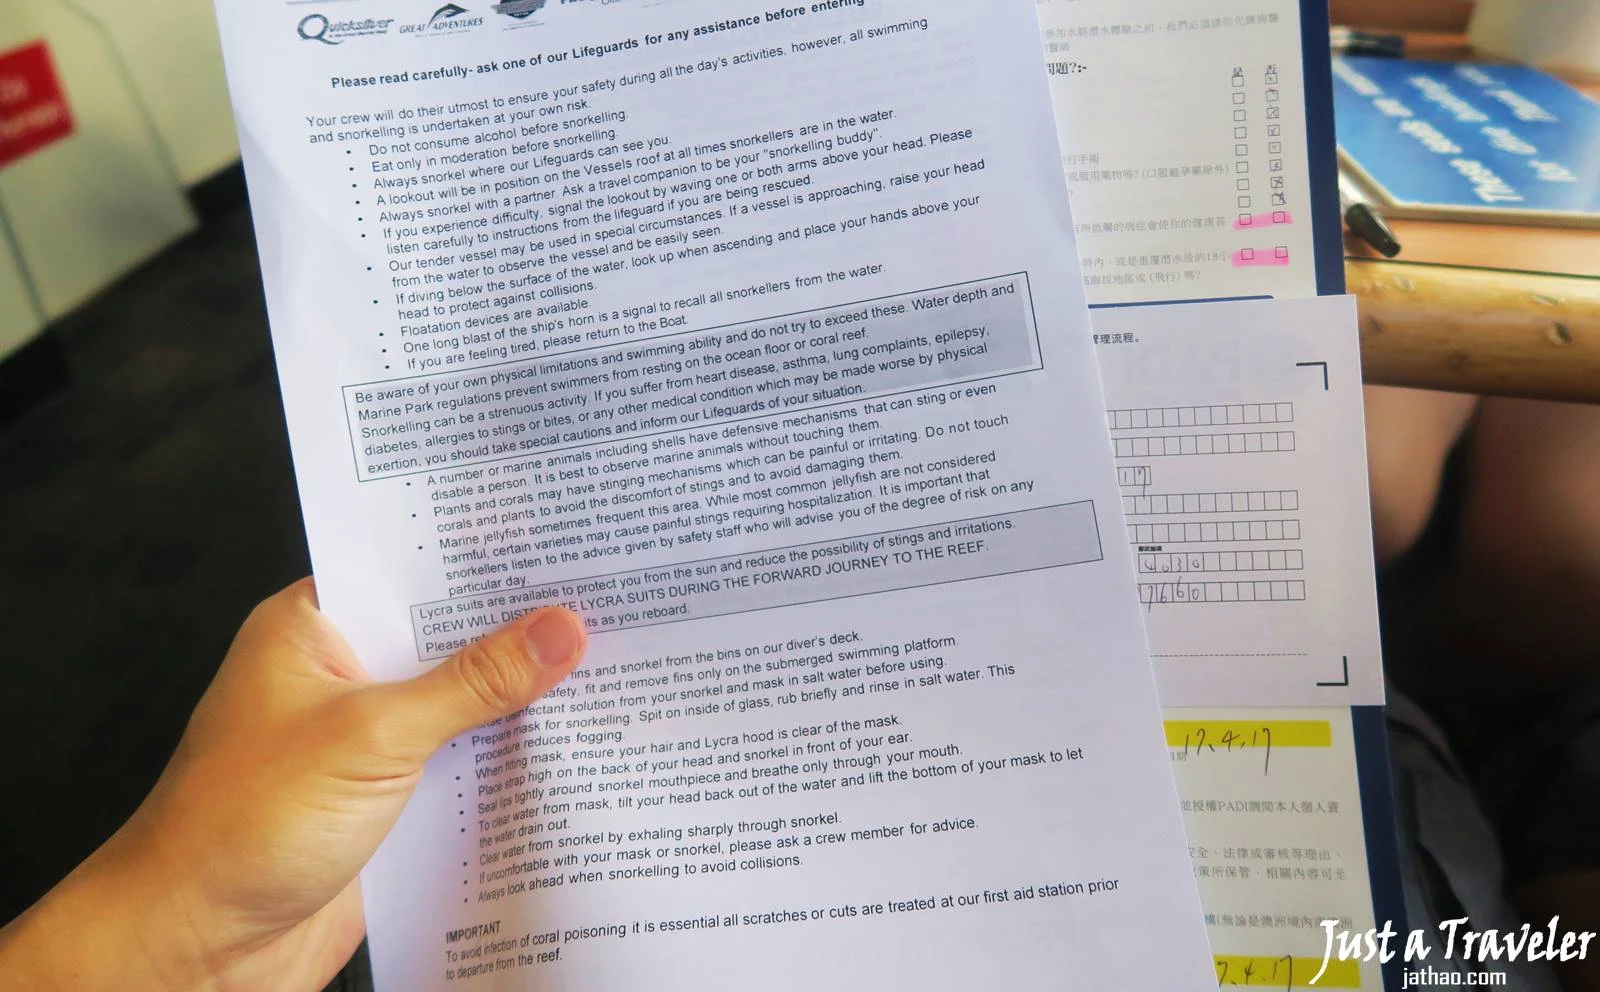 Quicksilver
GREAT ADVENTURES
Please read carefully- ask one of our Lifeguards for any assistance before entering
Your crew will do their utmost to ensure your safety during all the day's activities, however, all swimming
and snorkelling is undertaken at your own risk.
• Do not consume alcohol before snorkelling.
• Eat only in moderation before snorkelling.
• Always snorkel where our Lifeguards can see you.
• A lookout will be in position on the Vessels roof at all times snorkellers are in the water.
• Always snorkel with a partner. Ask a travel companion to be your "snorkelling buddy".
• If you experience difficulty, signal the lookout by waving one or both arms above your head. Please
listen carefully to instructions from the lifeguard if you are being rescued.
• Our tender vessel may be used in special circumstances. If a vessel is approaching, raise your head
from the water to observe the vessel and be easily seen.
• If diving below the surface of the water, look up when ascending and place your hands above your
head to protect against collisions.
• Floatation devices are available.
• One long blast of the ship's horn is a signal to recall all snorkellers from the water.
• If you are feeling tired, please return to the Boat.
Be aware of your own physical limitations and swimming ability and do not try to exceed these. Water depth and
Marine Park regulations prevent swimmers from resting on the ocean floor or coral reef.
Snorkelling can be a strenuous activity. If you suffer from heart disease, asthma, lung complaints, epilepsy,
diabetes, allergies to stings or bites, or any other medical condition which may be made worse by physical
exertion, you should take special cautions and inform our Lifeguards of your situation.
• A number or marine animals including shells have defensive mechanisms that can sting or even
disable a person. It is best to observe marine animals without touching them.
• Plants and corals may have stinging mechanisms which can be painful or irritating. Do not touch
corals and plants to avoid the discomfort of stings and to avoid damaging them.
• Marine jellyfish sometimes frequent this area. While most common jellyfish are not considered
harmful, certain varieties may cause painful stings requiring hospitalization. It is important that
snorkellers listen to the advice given by safety staff who will advise you of the degree of risk on any
particular day.
Lycra suits are available to protect you from the sun and reduce the possibility of stings and irritations.
CREW WILL DISTRIBUTE LYCRA SUITS DURING THE FORWARD JOURNEY TO THE REEF.
Please its as you reboard.
fins and snorkel from the bins on our diver's deck.
safety, fit and remove fins only on the submerged swimming platform.
disinfectant solution from your snorkel and mask in salt water before using.
• Prepare mask for snorkelling. Spit on inside of glass, rub briefly and rinse in salt water. This
procedure reduces fogging.
• When fitting mask, ensure your hair and Lycra hood is clear of the mask.
• Place strap high on the back of your head and snorkel in front of your ear.
• Seal lips tightly around snorkel mouthpiece and breathe only through your mouth.
• To clear water from mask, tilt your head back out of the water and lift the bottom of your mask to let
the water drain out.
• Clear water from snorkel by exhaling sharply through snorkel.
• If uncomfortable with your mask or snorkel, please ask a crew member for advice.
• Always look ahead when snorkelling to avoid collisions.
IMPORTANT
To avoid infection of coral poisoning it is essential all scratches or cuts are treated at our first aid station prior
to departure from the reef.
參加水肺潛水體驗之前，我們必須請你先諮詢醫
問題?:-
是 否
行手術
或服用藥物嗎? (口服避孕藥除外)
有所抵觸的病症會使你的健康甚
時內，或是重覆潛水後的18小
高海拔地區或 (飛行) 嗎?
管理流程。
17
4030
7660
17.4.17
並授權PADI調閱本人個人資
安全、法律或審核等理由、
策所保管、相關內容可至
構(無論是澳洲境內或
17.4.17
Just a Traveler
jathao.com